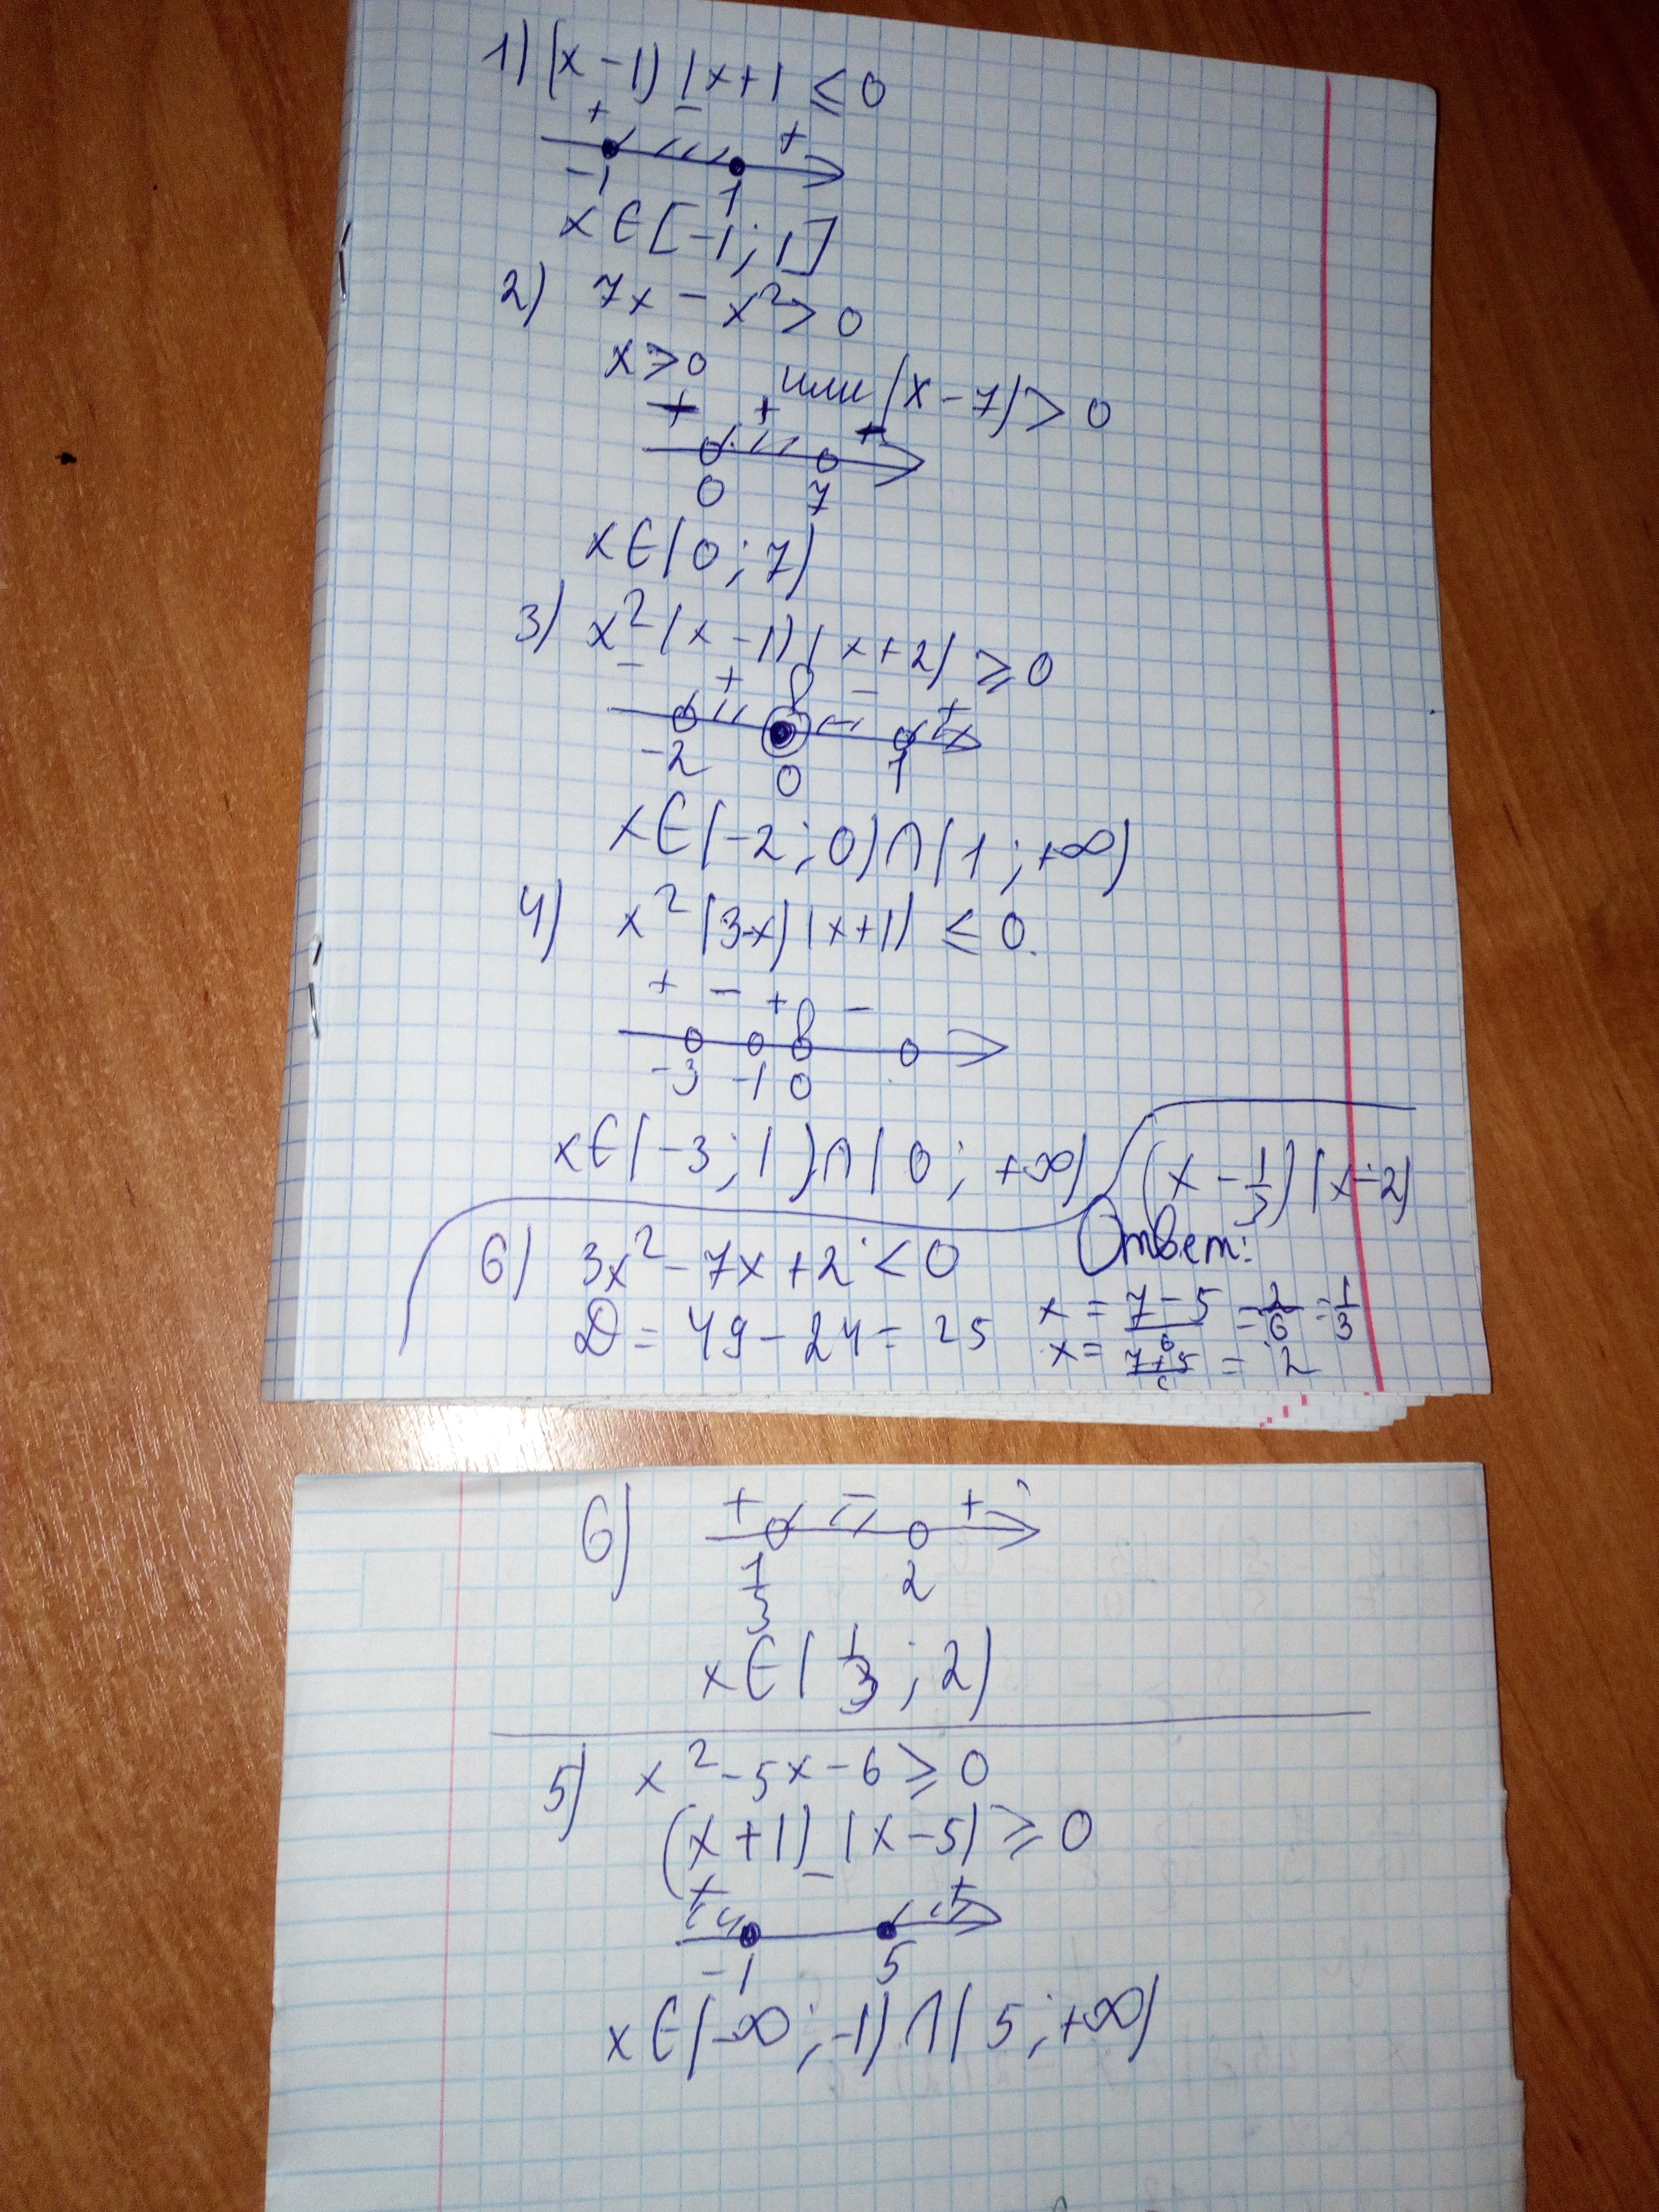 1) (x-1)(x+1 ≤ 0
+ - +
-1 1
x∈[-1; 1]
2) 7x - x² > 0
x > 0 или (x-7) > 0
+
0 7
x∈(0; 7)
3) x²(x-1)(x+2) ≥ 0
- + - +
-2 0 1
x∈(-2; 0)∩(1; +∞)
4) x²(3-x)(x+1) ≤ 0.
+ - + -
-3 -1 0
x∈(-3; 1)∩(0; +∞)
(x - 1/3)(x-2)
6) 3x² - 7x + 2 < 0
D = 49 - 24 = 25
Ответ:
x = (7-5)/6 = 2/6 = 1/3
x = (7+5)/6 = 2
6) + - +
1/3 2
x∈(1/3; 2)
5) x² - 5x - 6 ≥ 0
(x+1)(x-5) ≥ 0
+ - +
-1 5
x∈(-∞; -1)∩(5; +∞)